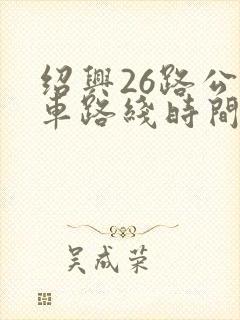 绍興26路公
車路綫時間
吴成荣